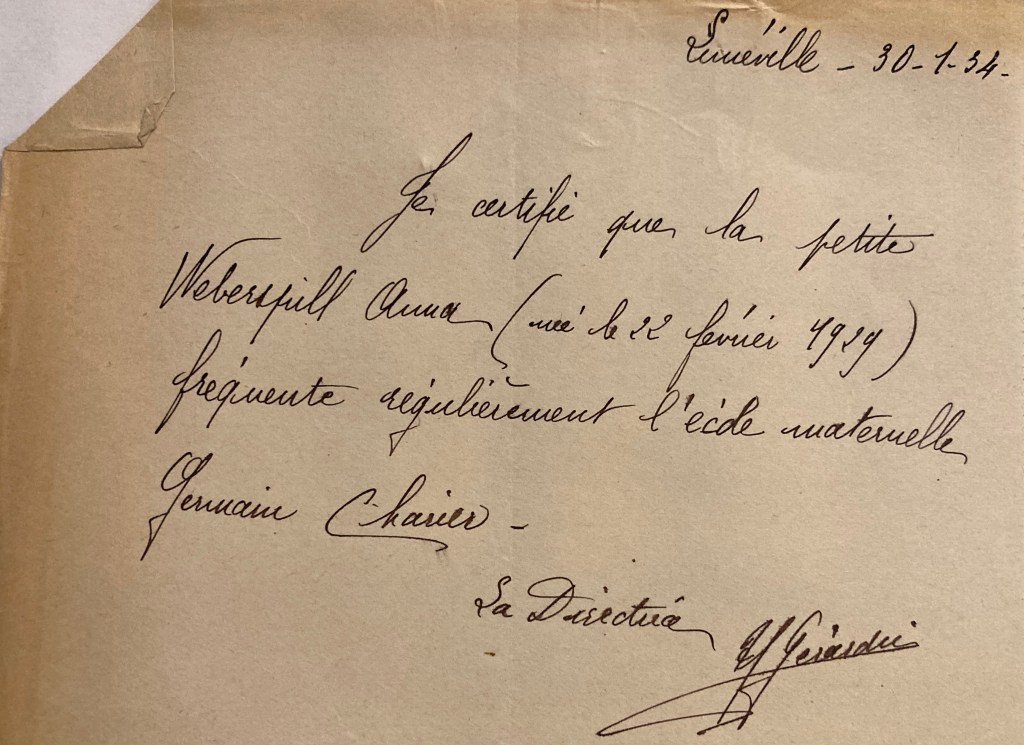 Lunéville - 30-1-34-
Je certifie que la petite
Weberspill Anna (née le 22 février 1929)
fréquente régulièrement l'école maternelle
Germain Charier -
La Directrice
Gérardin